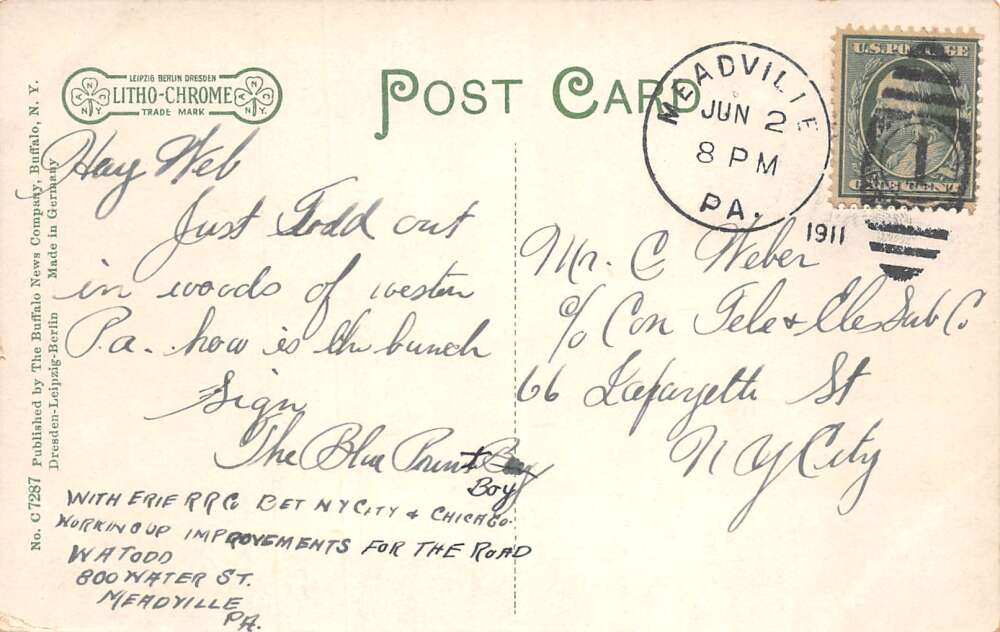 LEIPZIG BERLIN DRESDEN
LITHO-CHROME
TRADE MARK
ANCNY
ANCNY
POST CARD
MEADVILLE
JUN 2
8 PM
PA.
1911
U.S. POSTAGE
1
ONE CENT
No. C 7287 Published by The Buffalo News Company, Buffalo, N. Y.
Dresden-Leipzig-Berlin Made in Germany
Hay Web
Just Todd out
in woods of western
P.a. how is the bunch
Sign
The Blue Print Boy
Boy
WITH ERIE RR Co BET NY CITY & CHICAGO
WORKING UP IMPROVEMENTS FOR THE ROAD
WA TODD
800 WATER ST.
MEADVILLE
PA.
Mr. C Weber
c/o Con Tele & Ele Sub Co
66 Lafayette St
N Y City